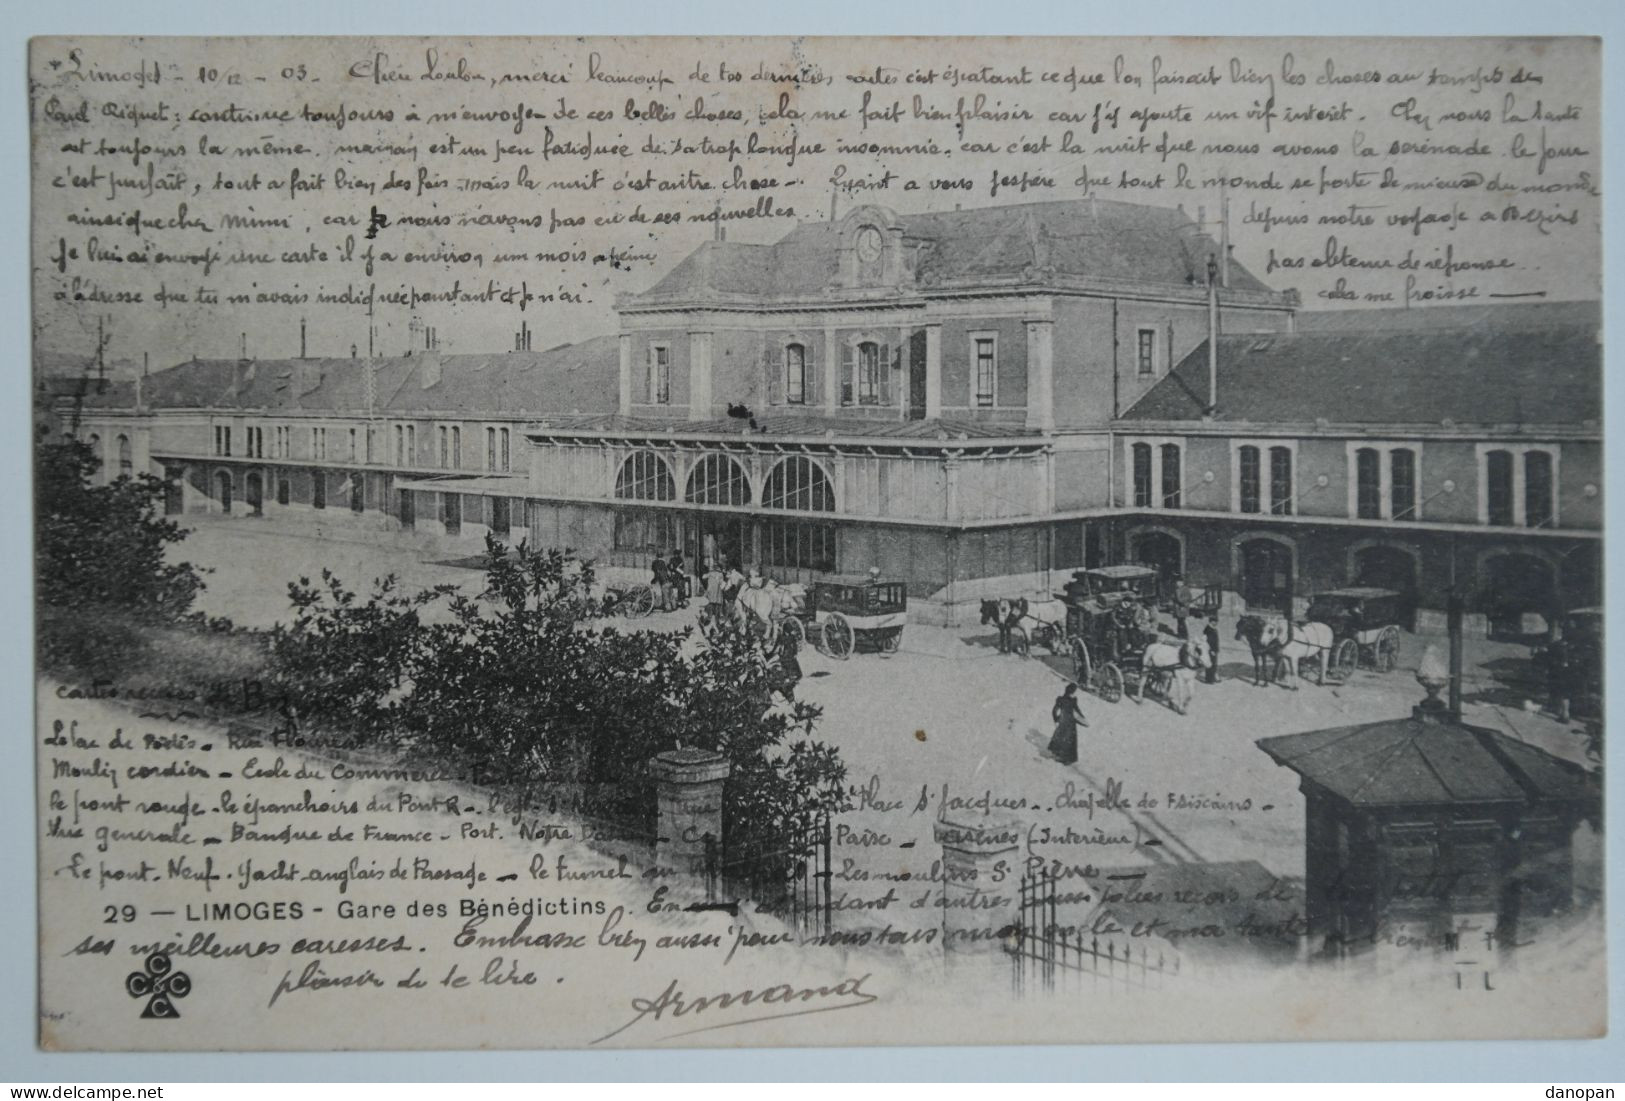 Limoges - 10/12 - 03 - Chère Loulou, merci beaucoup de tes dernières cartes c'est épatant ce que l'on faisait bien les choses au temps de
Paul Riquet; continue toujours à m'envoyer de ces belles choses, cela me fait bien plaisir car j'y ajoute un vif intérêt. Chez nous la santé
est toujours la même. maman est un peu fatiguée de sa trop longue insomnie. car c'est la nuit que nous avons la sérénade. le jour
c'est parfait, tout a fait bien des fois - mais la nuit c'est autre chose - Quant a vous j'espère que tout le monde se porte le mieux du monde
ainsi que chez Mimi, car nous n'avons pas eu de ses nouvelles depuis notre voyage a Beziers
Je lui ai envoyé une carte il y a environ un mois a peine pas obtenu de réponse.
à l'adresse que tu m'avais indiquée pourtant et je n'ai cela me froisse —
cartes recues de B
Le lac de - Rue Flourens
Moulin cordier - Ecole du Commerce -
le pont rouge - le épanchoirs du Pont R - l'égl. St Place St Jacques - Chapelle de -
Vue generale - Banque de France - Port Notre Dame - Paix - (Interieur) -
Le pont - Neuf - Yacht anglais de Passage - le tunnel - Les moulins St Pierre -
29 — LIMOGES - Gare des Bénédictins. En attendant d'autres aussi jolies reçois de
ses meilleures caresses. Embrasse bien aussi pour nous tous mon oncle et ma tante a bientôt le
plaisir de te lire.
Armand
C C C C
M T
I L
www.delcampe.net
danopan